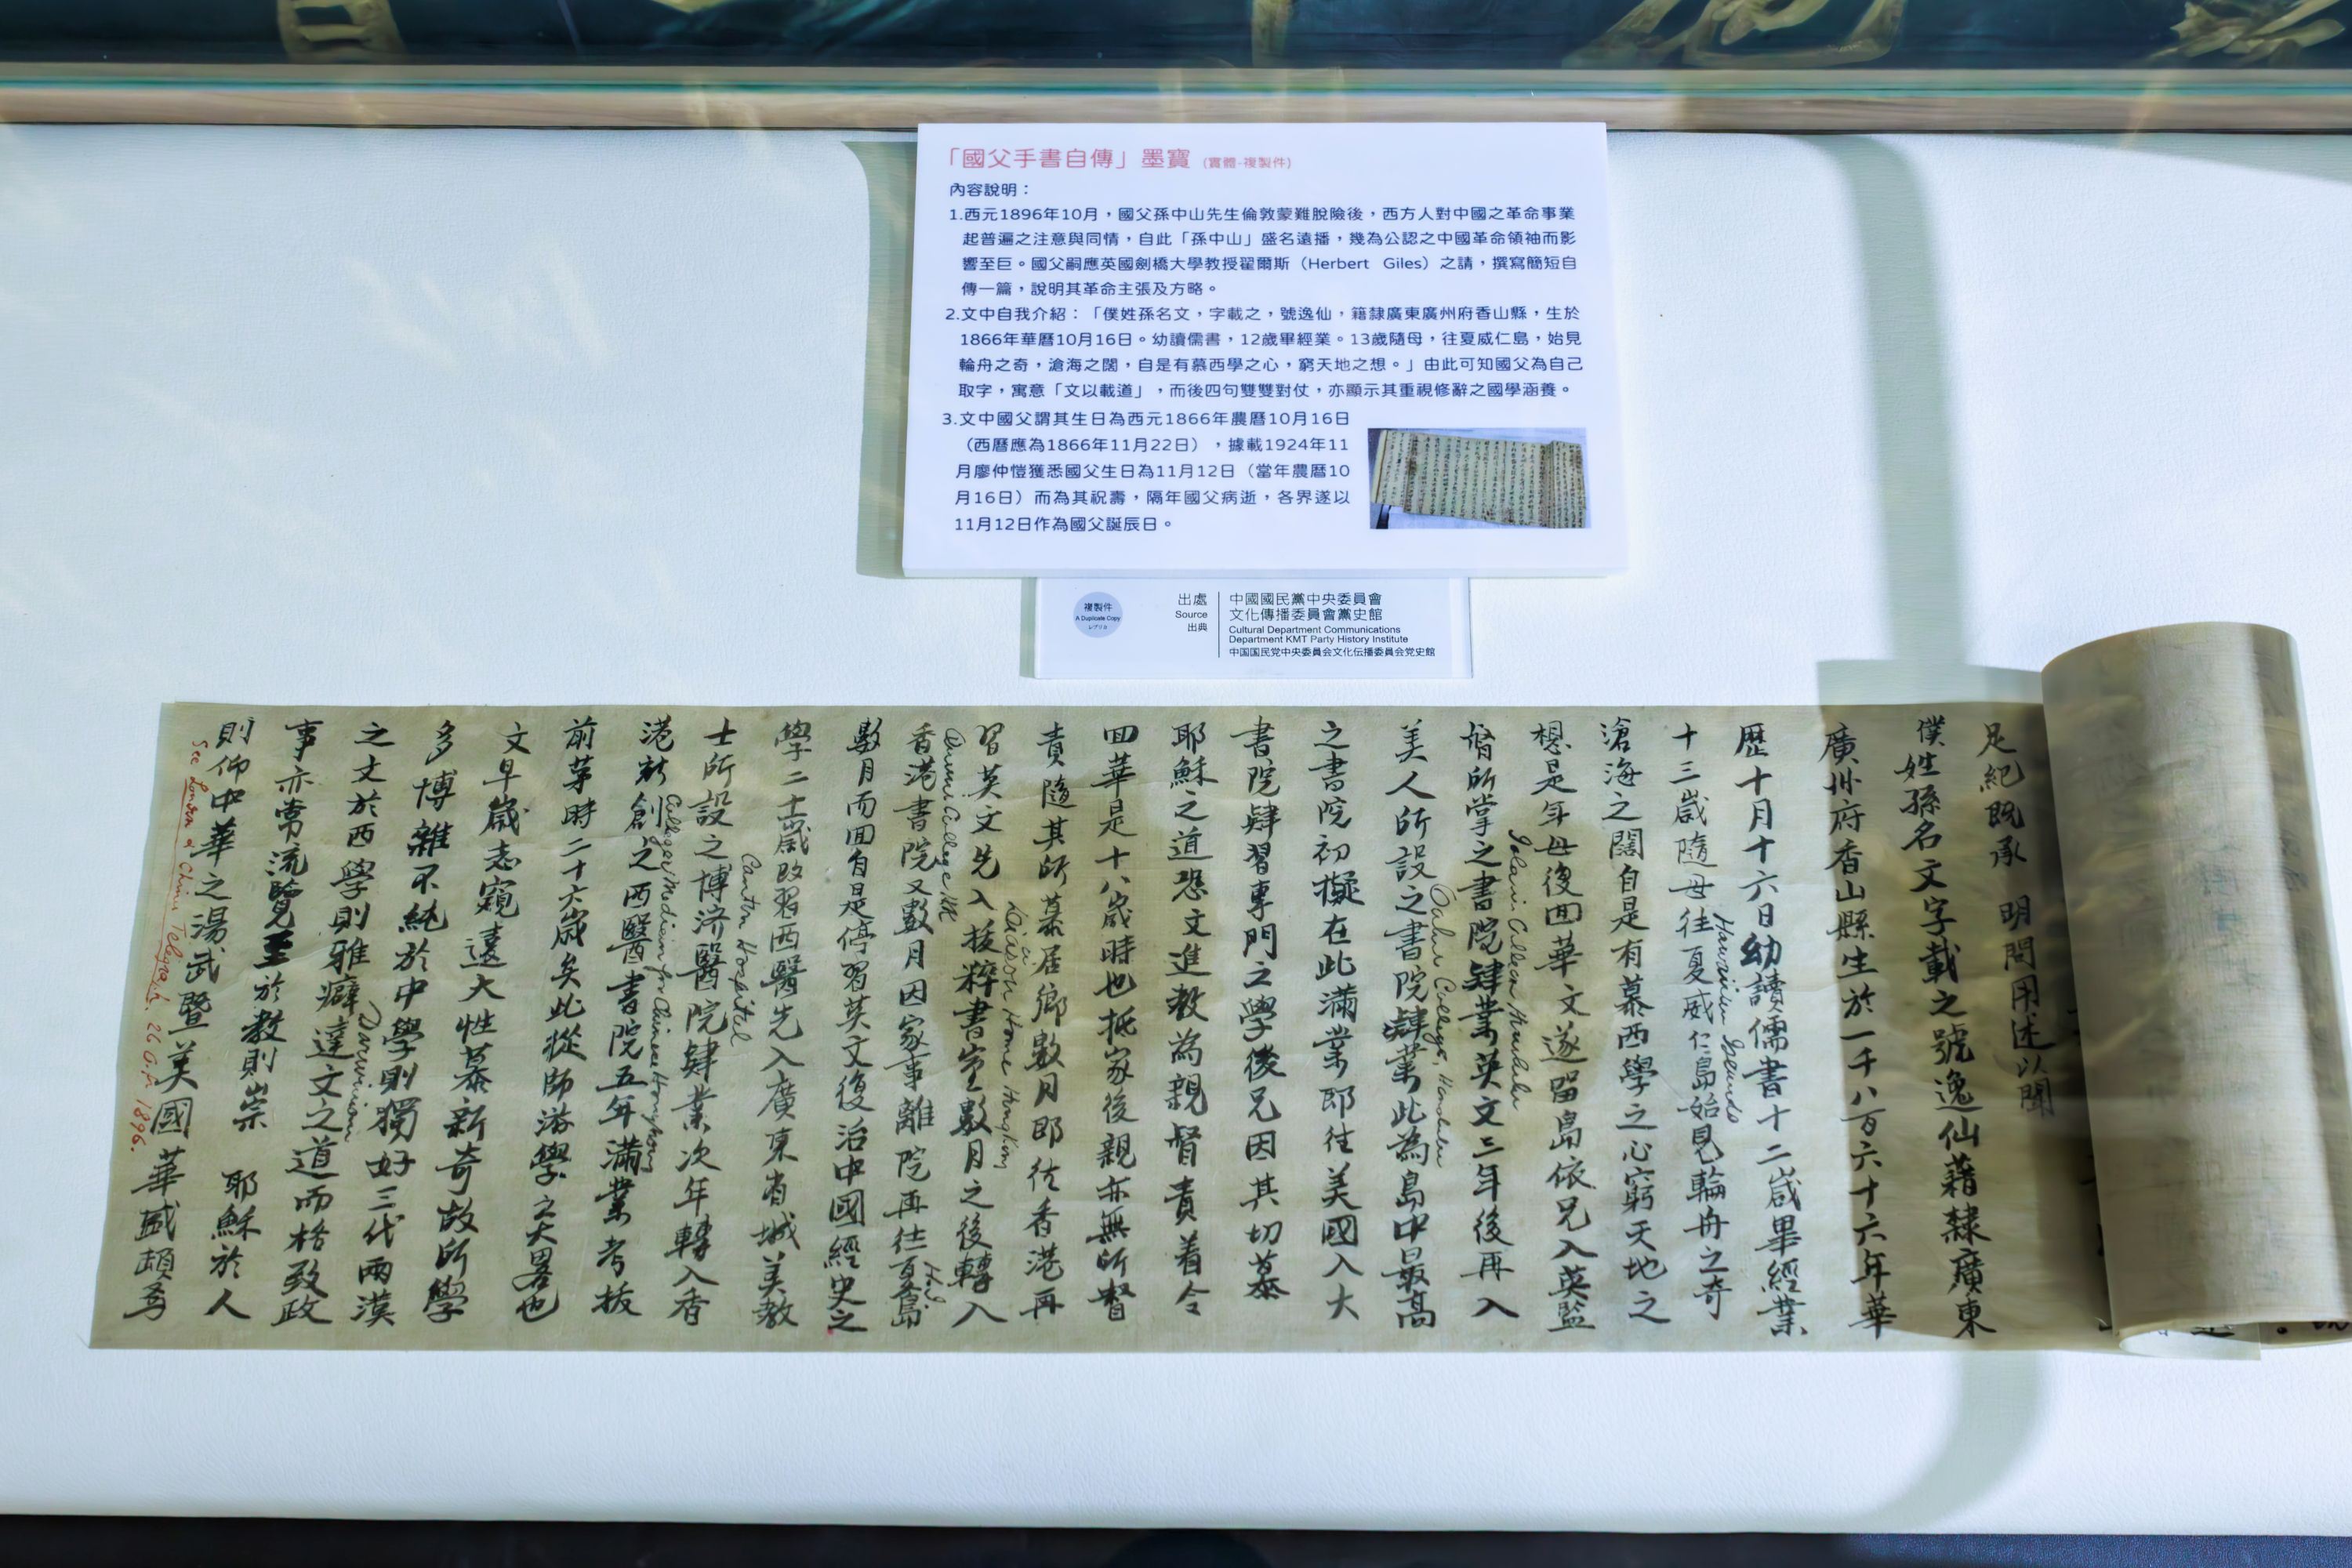 「國父手書自傳」墨寶 (實體-複製件)
內容說明：
1.西元1896年10月，國父孫中山先生倫敦蒙難脫險後，西方人對中國之革命事業
起普遍之注意與同情，自此「孫中山」盛名遠播，幾為公認之中國革命領袖而影
響至巨。國父嗣應英國劍橋大學教授翟爾斯（Herbert Giles）之請，撰寫簡短自
傳一篇，說明其革命主張及方略。
2.文中自我介紹：「僕姓孫名文，字載之，號逸仙，籍隸廣東廣州府香山縣，生於
1866年華曆10月16日。幼讀儒書，12歲畢經業。13歲隨母，往夏威仁島，始見
輪舟之奇，滄海之闊，自是有慕西學之心，窮天地之想。」由此可知國父為自己
取字，寓意「文以載道」，而後四句雙雙對仗，亦顯示其重視修辭之國學涵養。
3.文中國父謂其生日為西元1866年農曆10月16日
（西曆應為1866年11月22日），據載1924年11
月廖仲愷獲悉國父生日為11月12日（當年農曆10
月16日）而為其祝壽，隔年國父病逝，各界遂以
11月12日作為國父誕辰日。
複製件
A Duplicate Copy
レプリカ
出處
Source
出典
中國國民黨中央委員會
文化傳播委員會黨史館
Cultural Department Communications
Department KMT Party History Institute
中国国民党中央委員会文化伝播委員会党史館
足紀既承 明問用述以聞
僕姓孫名文字載之號逸仙藉隸廣東
廣州府香山縣生於一千八百六十六年華
歷十月十六日幼讀儒書十二歲畢經業
十三歲隨母往夏威仁島始見輪舟之奇
Hawaiian Islands
滄海之闊自是有慕西學之心窮天地之
想是年母復回華文遂留島依兄入英監
督所掌之書院肄業英文三年後再入
美人所設之書院肄業此為島中最高
Oahu College, Honolulu
之書院初擬在此滿業即往美國入大
書院肄習專門之學後兄因其切慕
耶穌之道恐文進教為親督責着令
回華是十八歲時也抵家後親亦無所督
責隨其所慕居鄉數月即往香港再
習英文先入拔粹書室數月之後轉入
Queen's College HK
香港書院又數月因家事離院再往夏島
數月而回自是停習英文復治中國經史之
學二十一歲改習西醫先入廣東省城美教
Canton Hospital
士所設之博济醫院肄業次年轉入香
港新創之西醫書院五年滿業考拔
College of Medicine for Chinese Hongkong
前茅時二十六歲矣此從師游學之大畧也
文早歲志窺遠大性慕新奇故所學
多博雜不純於中學則獨好三代兩漢
之文於西學則雅癖達文之道而格致政
Darwinian
事亦常流覽至於教則崇 耶穌於人
則仰中華之湯武暨美國華盛頓焉
See London & China Telegraph. 26 Oct 1896.